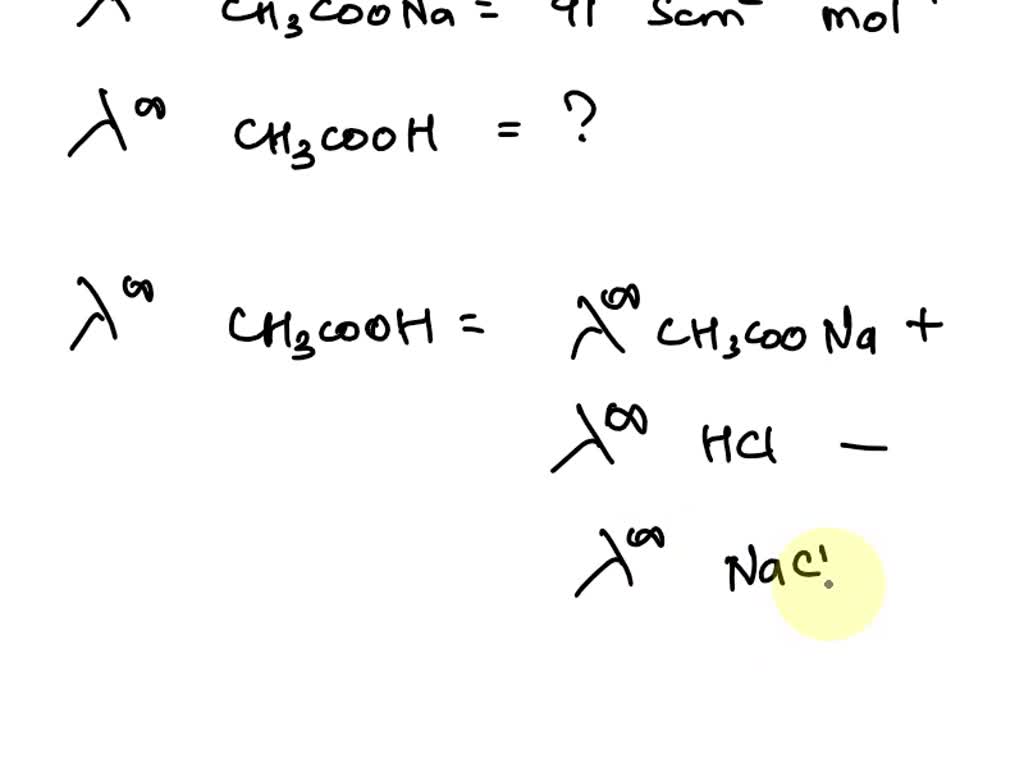 λ CH₃COONa = 91 Scm² mol
λ^∞ CH₃COOH = ?
λ^∞ CH₃COOH = λ^∞ CH₃COO Na +
λ^∞ HCl —
λ^∞ NaCl